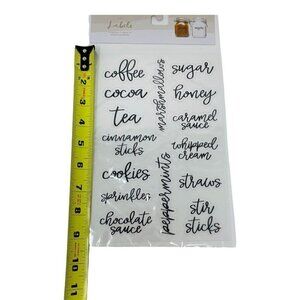 Labels
coffee
cocoa
tea
cinnamon
sticks
cookies
sprinkles
chocolate
sauce
marshmallows
peppermints
sugar
honey
caramel
sauce
whipped
cream
straws
stir
sticks
2
3
4
5
6
7
8
9
10
11